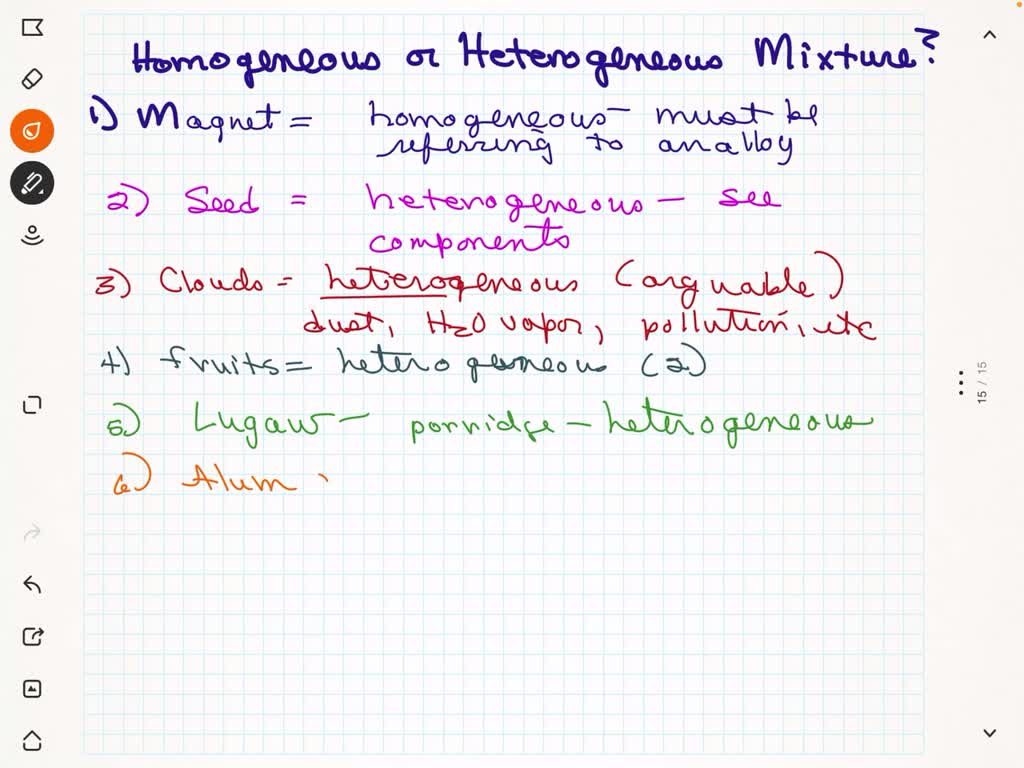 Homogeneous or Heterogeneous Mixture?
1) Magnet = homogeneous - must be
referring to an alloy
2) Seed = heterogeneous - see
components
3) Clouds = heterogeneous (arguable)
dust, H2O vapor, pollution, etc
4) fruits = heterogeneous (2)
5) Lugaw - porridge - heterogeneous
6) Alum
15 / 15